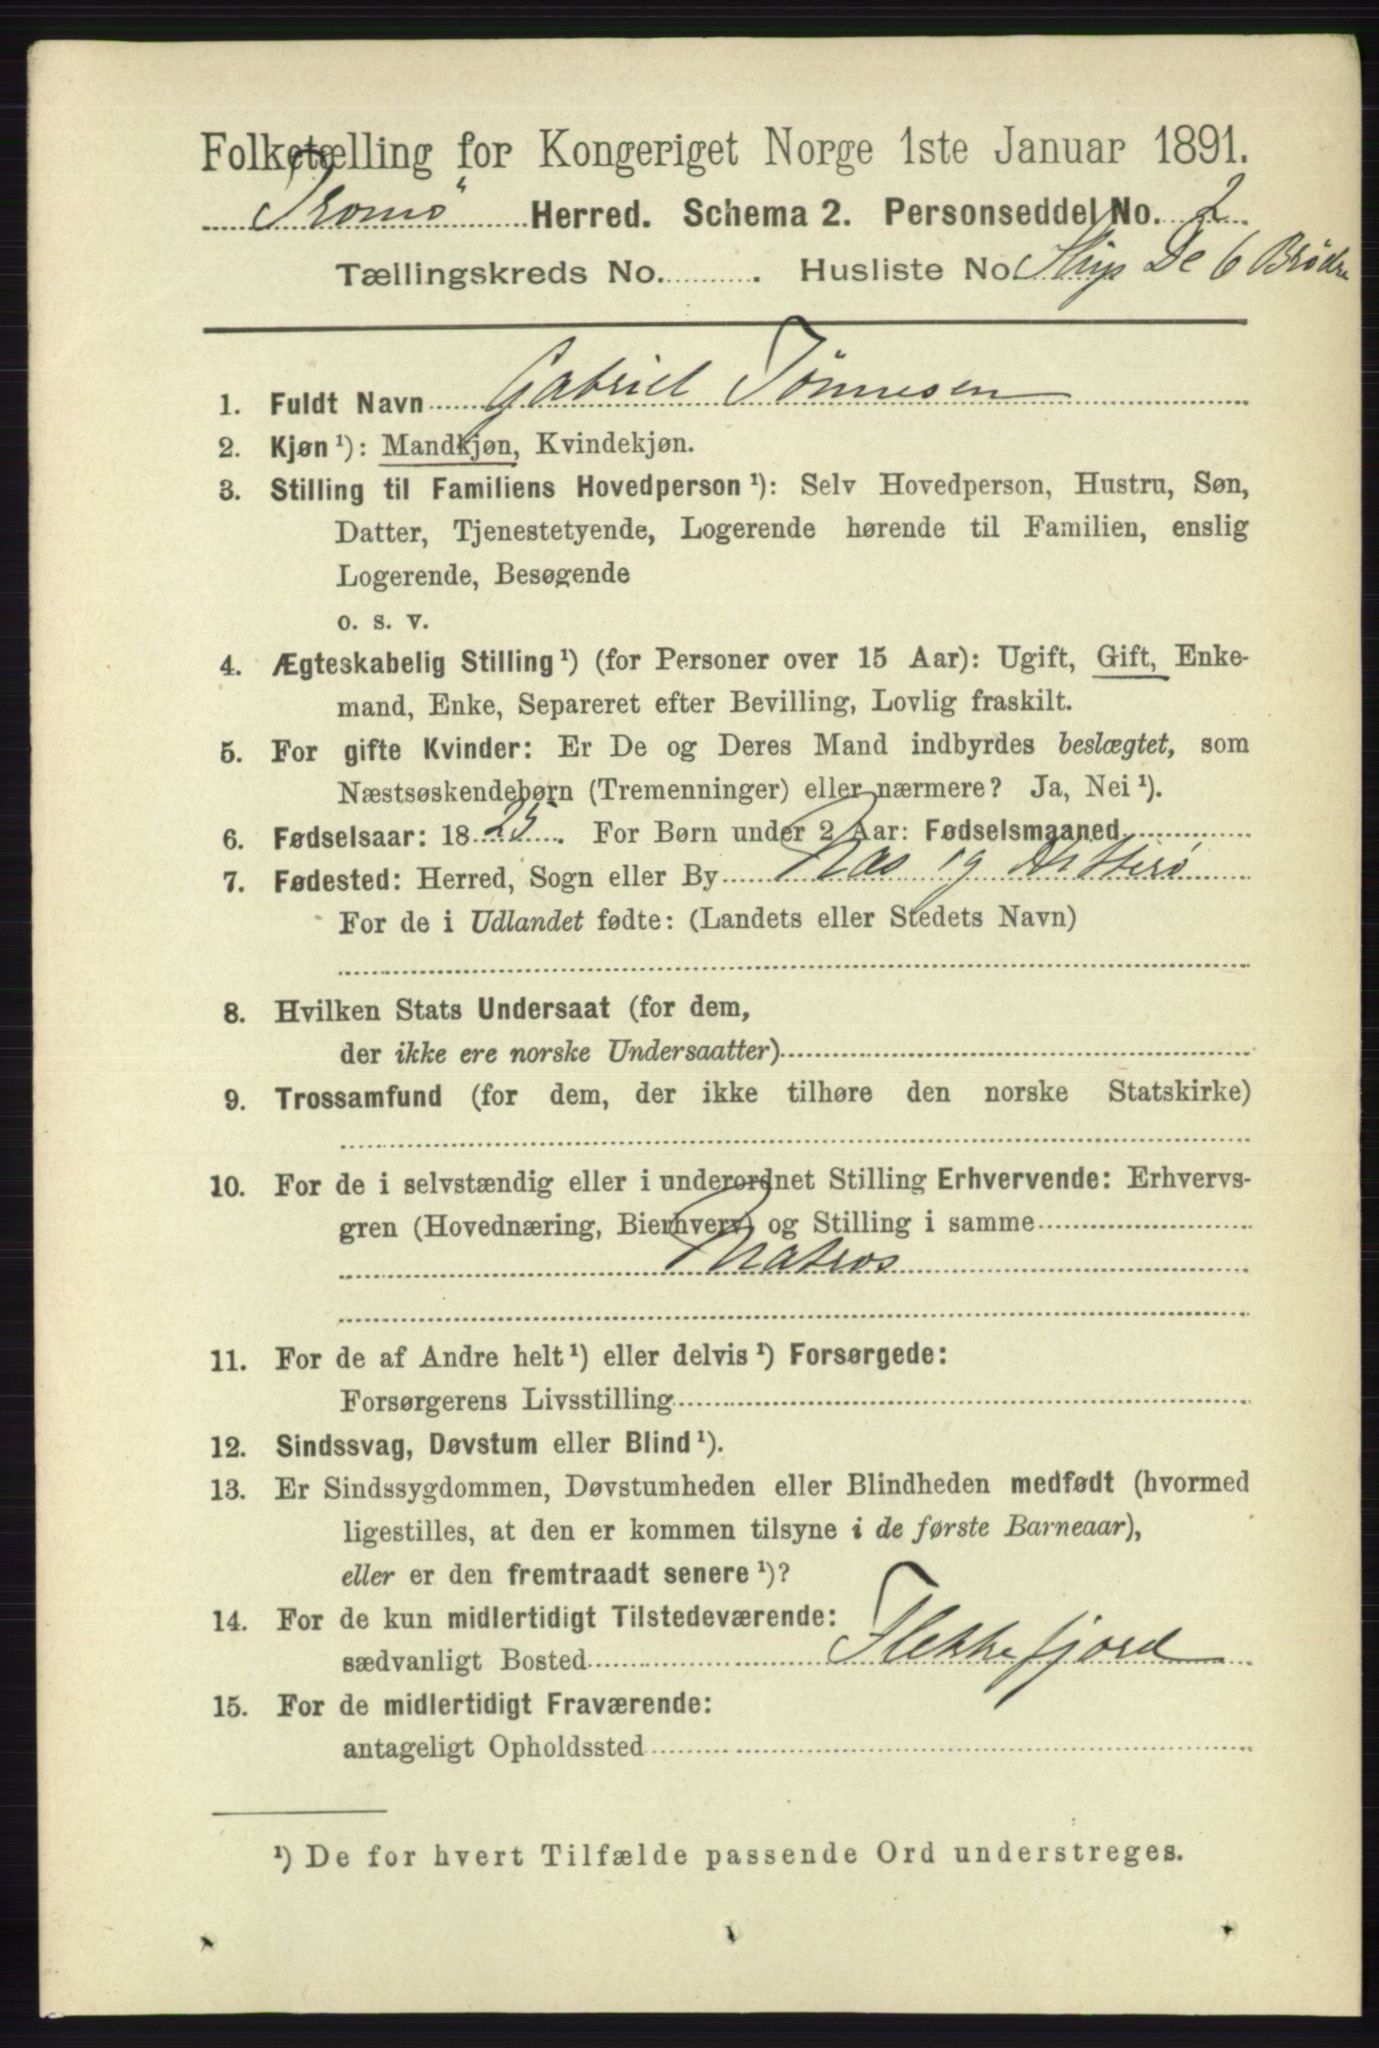 Folketælling for Kongeriget Norge 1ste Januar 1891.
Tromö Herred. Schema 2. Personseddel No. 2
Tællingskreds No. . Husliste No Skip De 6 Brödre
1. Fuldt Navn Gabriel Tönnesen
2. Kjøn¹): Mandkjøn, Kvindekjøn.
3. Stilling til Familiens Hovedperson¹): Selv Hovedperson, Hustru, Søn,
Datter, Tjenestetyende, Logerende hørende til Familien, enslig
Logerende, Besøgende
o. s. v.
4. Ægteskabelig Stilling¹) (for Personer over 15 Aar): Ugift, Gift, Enke-
mand, Enke, Separeret efter Bevilling, Lovlig fraskilt.
5. For gifte Kvinder: Er De og Deres Mand indbyrdes beslægtet, som
Næstsøskendebørn (Tremenninger) eller nærmere? Ja, Nei¹).
6. Fødselsaar: 1825. For Børn under 2 Aar: Fødselsmaaned
7. Fødested: Herred, Sogn eller By Næs ig Hitterö
For de i Udlandet fødte: (Landets eller Stedets Navn)
8. Hvilken Stats Undersaat (for dem,
der ikke ere norske Undersaatter)
9. Trossamfund (for dem, der ikke tilhøre den norske Statskirke)
10. For de i selvstændig eller i underordnet Stilling Erhvervende: Erhvervs-
gren (Hovednæring, Bierhverv) og Stilling i samme
Matros
11. For de af Andre helt¹) eller delvis¹) Forsørgede:
Forsørgerens Livsstilling
12. Sindssvag, Døvstum eller Blind¹).
13. Er Sindssygdommen, Døvstumheden eller Blindheden medfødt (hvormed
ligestilles, at den er kommen tilsyne i de første Barneaar),
eller er den fremtraadt senere¹)?
14. For de kun midlertidigt Tilstedeværende:
sædvanligt Bosted Flekkefjord
15. For de midlertidigt Fraværende:
antageligt Opholdssted
¹) De for hvert Tilfælde passende Ord understreges.